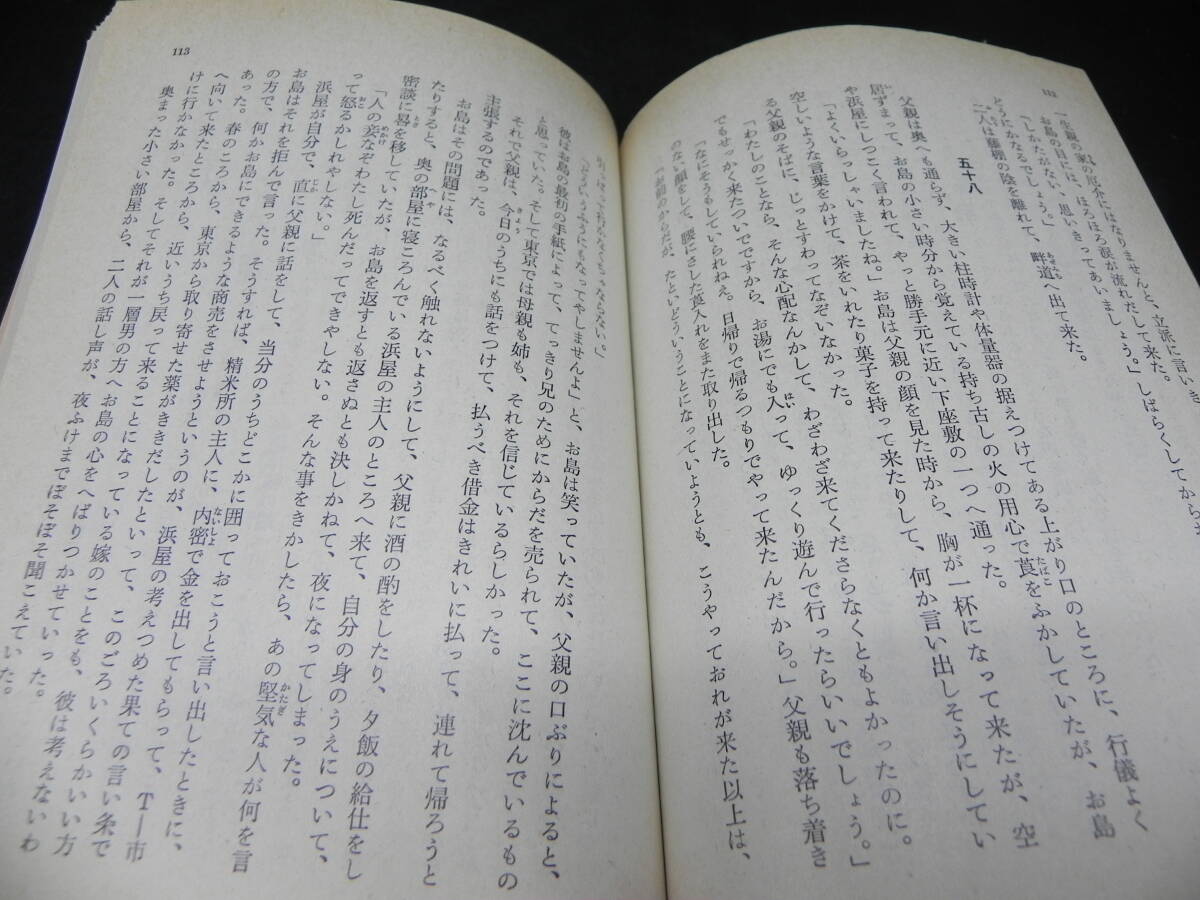 112
「生家の家の厄介にはなりませんと、立派に言いき
お島の目には、ほろほろ涙が流れだして来た。
「しかたがない、思いきってあいましょう。」しばらくしてから
どうにかなるでしょう。」
二人は藤棚の陰を離れて、畔道へ出て来た。
五十八
父親は奥へも通らず、大きい柱時計や体量器の据えつけてある上がり口のところに、行儀よく
居ずまって、お島の小さい時分から覚えている持ち古しの火の用心で莨をふかしていたが、お島
や浜屋にしつこく言われて、やっと勝手元に近い下座敷の一つへ通った。
「よくいらっしゃいましたね。」お島は父親の顔を見た時から、胸が一杯になって来たが、空
空しいような言葉をかけて、茶をいれたり菓子を持って来たりして、何か言い出しそうにしてい
る父親のそばに、じっとすわってなぞいなかった。
「わたしのことなら、そんな心配なんかして、わざわざ来てくださらなくともよかったのに。
でもせっかく来たついでですから、お湯にでも入って、ゆっくり遊んで行ったらいいでしょう。」
「なにそうもしていられねえ。日帰りで帰るつもりでやって来たんだから。」父親も落ち着き
のない顔をして、腰にさした莨入れをまた取り出した。
「お前のからだが、たといどういうことになっていようとも、こうやっておれが来た以上は、
引っぱって行かなくちゃならない。」
「どういうふうにもなってやしませんよ」と、お島は笑っていたが、父親の口ぶりによると、
彼はお島の最初の手紙によって、てっきり兄のためにからだを売られて、ここに沈んでいるもの
と思っていた。そして東京では母親も姉も、それを信じているらしかった。
それで父親は、今日のうちにも話をつけて、払うべき借金はきれいに払って、連れて帰ろうと
主張するのであった。
お島はその問題には、なるべく触れないようにして、父親に酒の酌をしたり、夕飯の給仕をし
たりすると、奥の部屋に寝ころんでいる浜屋の主人のところへ来て、自分の身のうえについて、
密談に晷を移していたが、お島を返すとも返さぬとも決しかねて、夜になってしまった。
「人の妾なぞわたし死んだってできやしない。そんな事をきかしたら、あの堅気な人が何を言
って怒るかしれやしない。」
浜屋が自分で、直に父親に話をして、当分のうちどこかに囲っておこうと言い出したときに、
お島はそれを拒んで言った。そうすれば、精米所の主人に、内密で金を出してもらって、T―市
の方で、何かお島にできるような商売をさせようというのが、浜屋の考えつめた果ての言い条で
あった。春のころから、東京から取り寄せた薬がききだしたといって、このごろいくらかいい方
へ向いて来たところから、近いうち戻って来ることになっている嫁のことをも、彼は考えないわ
けに行かなかった。そしてそれが一層男の方へお島の心をへばりつかせていった。
奥まった小さい部屋から、二人の話し声が、夜ふけまでぼそぼそ聞こえていた。
113